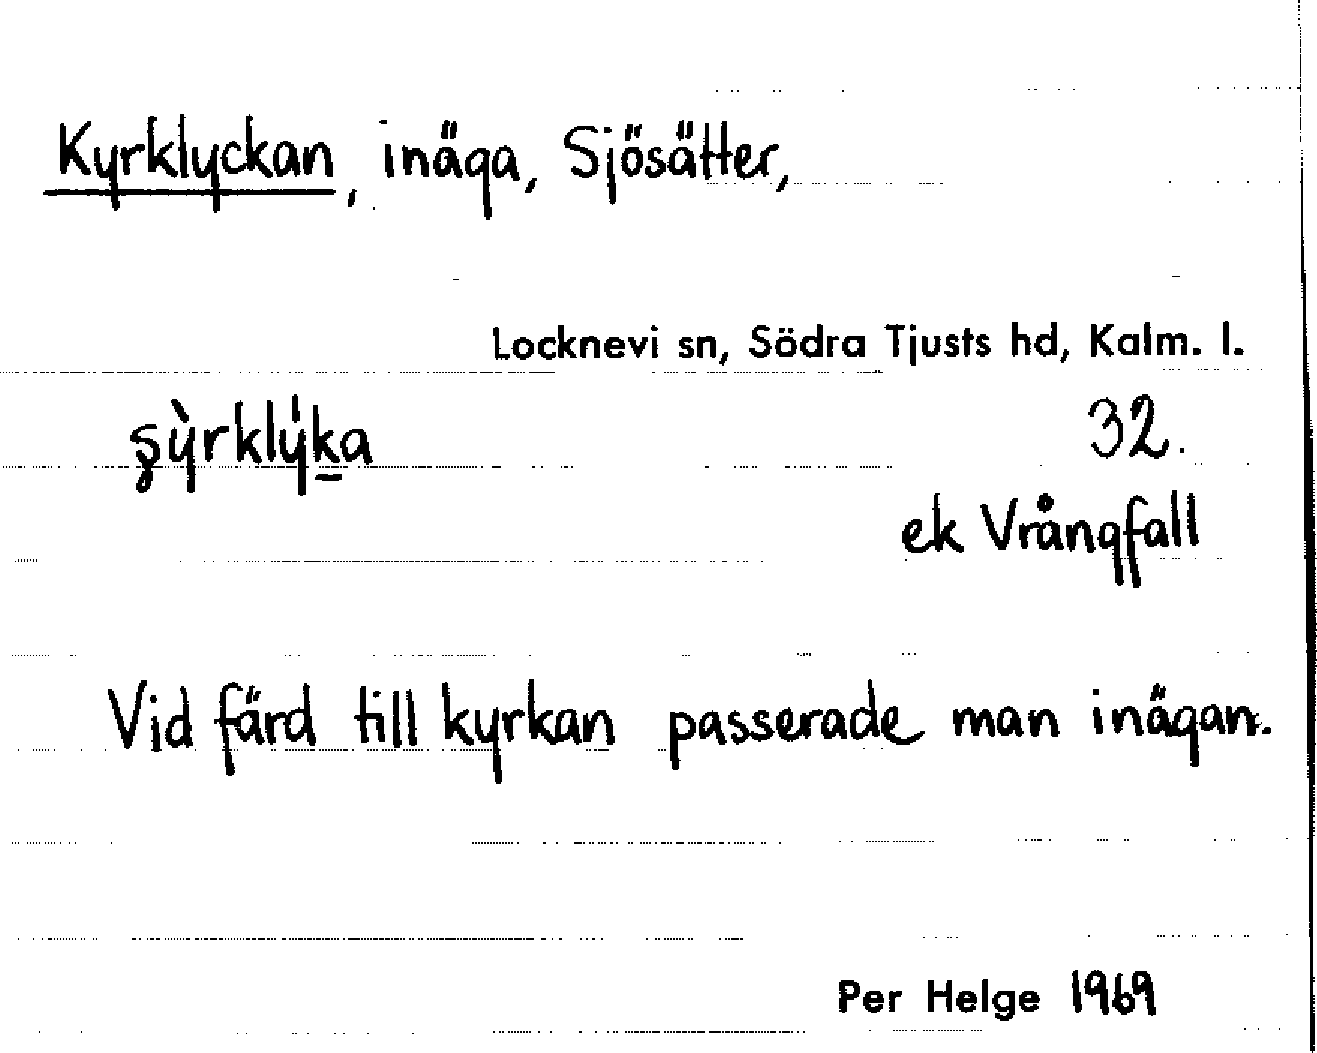 Kyrklyckan, inäga, Sjösätter,
Locknevi sn, Södra Tjusts hd, Kalm. l.
ȿỳrklýḵa 32.
ek Vrångfall
Vid färd till kyrkan passerade man inägan.
Per Helge 1969